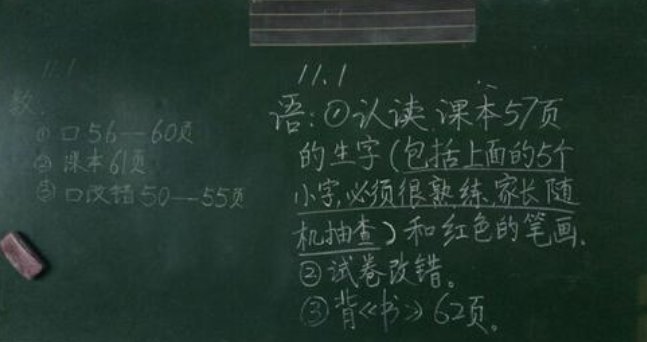 11.1
数:
①口56—60页
②课本61页
③口改错50—55页
11.1
语:①认读课本57页
的生字(包括上面的5个
小字,必须很熟练,家长随
机抽查)和红色的笔画.
②试卷改错。
③背《书》62页。